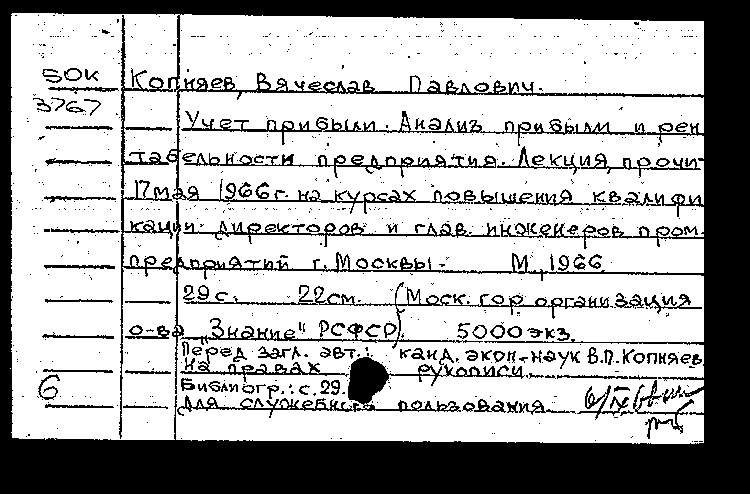 50К Копняев, Вячеслав Павлович.
3767
Учет прибыли. Анализ прибыли и рен
табельности предприятия. Лекция, прочи
17 мая 1966 г. на курсах повышения квалифи
кации директоров и глав. инженеров пром.
предприятий г. Москвы. М., 1966
29 с. 22 см. (Моск. гор организация
о-ва "Знание" РСФСР). 5000 экз.
Перед загл. авт.: канд. экон. наук В.П. Копняев
На правах рукописи.
6 Библиогр.: с. 29.
Для служебного пользования